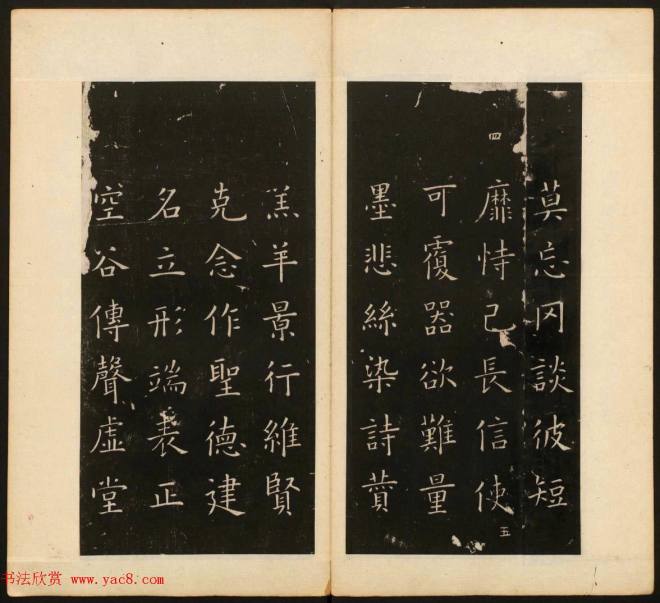 莫忘罔談彼短
四
靡恃己長信使
五
可覆器欲難量
墨悲絲染詩贊
羔羊景行維賢
克念作聖德建
名立形端表正
空谷傳聲虛堂
书法欣赏 www.yac8.com